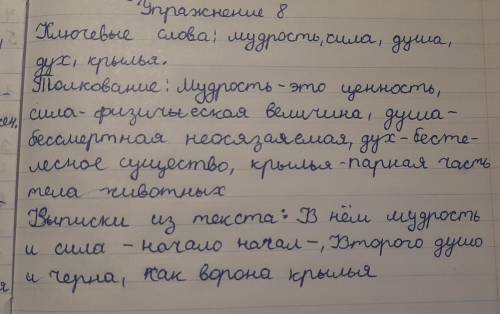 Упражнение 8
Ключевые слова: мудрость, сила, душа,
дух, крылья.
Толкование: Мудрость - это ценность,
сила - физическая величина, душа -
бессмертная неосязаемая, дух - бесте-
лесное существо, крылья - парная часть
тела животных
Выписки из текста: В нём мудрость
и сила - начало начал -, Второго душо
и черна, как ворона крылья